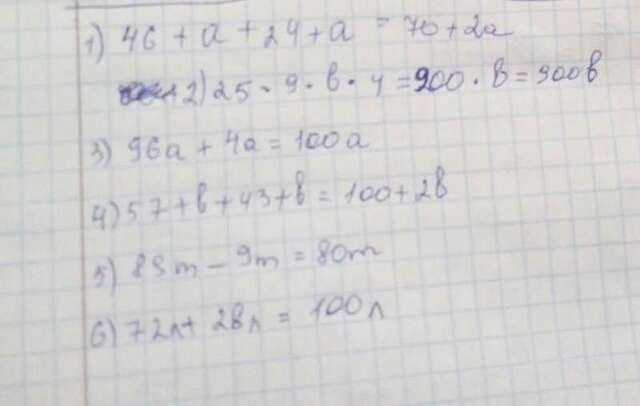 1) 46 + a + 24 + a = 70 + 2a
2) 25 · 9 · b · 4 = 900 · b = 900b
3) 96a + 4a = 100a
4) 57 + b + 43 + b = 100 + 2b
5) 89m - 9m = 80m
6) 72л + 28л = 100л